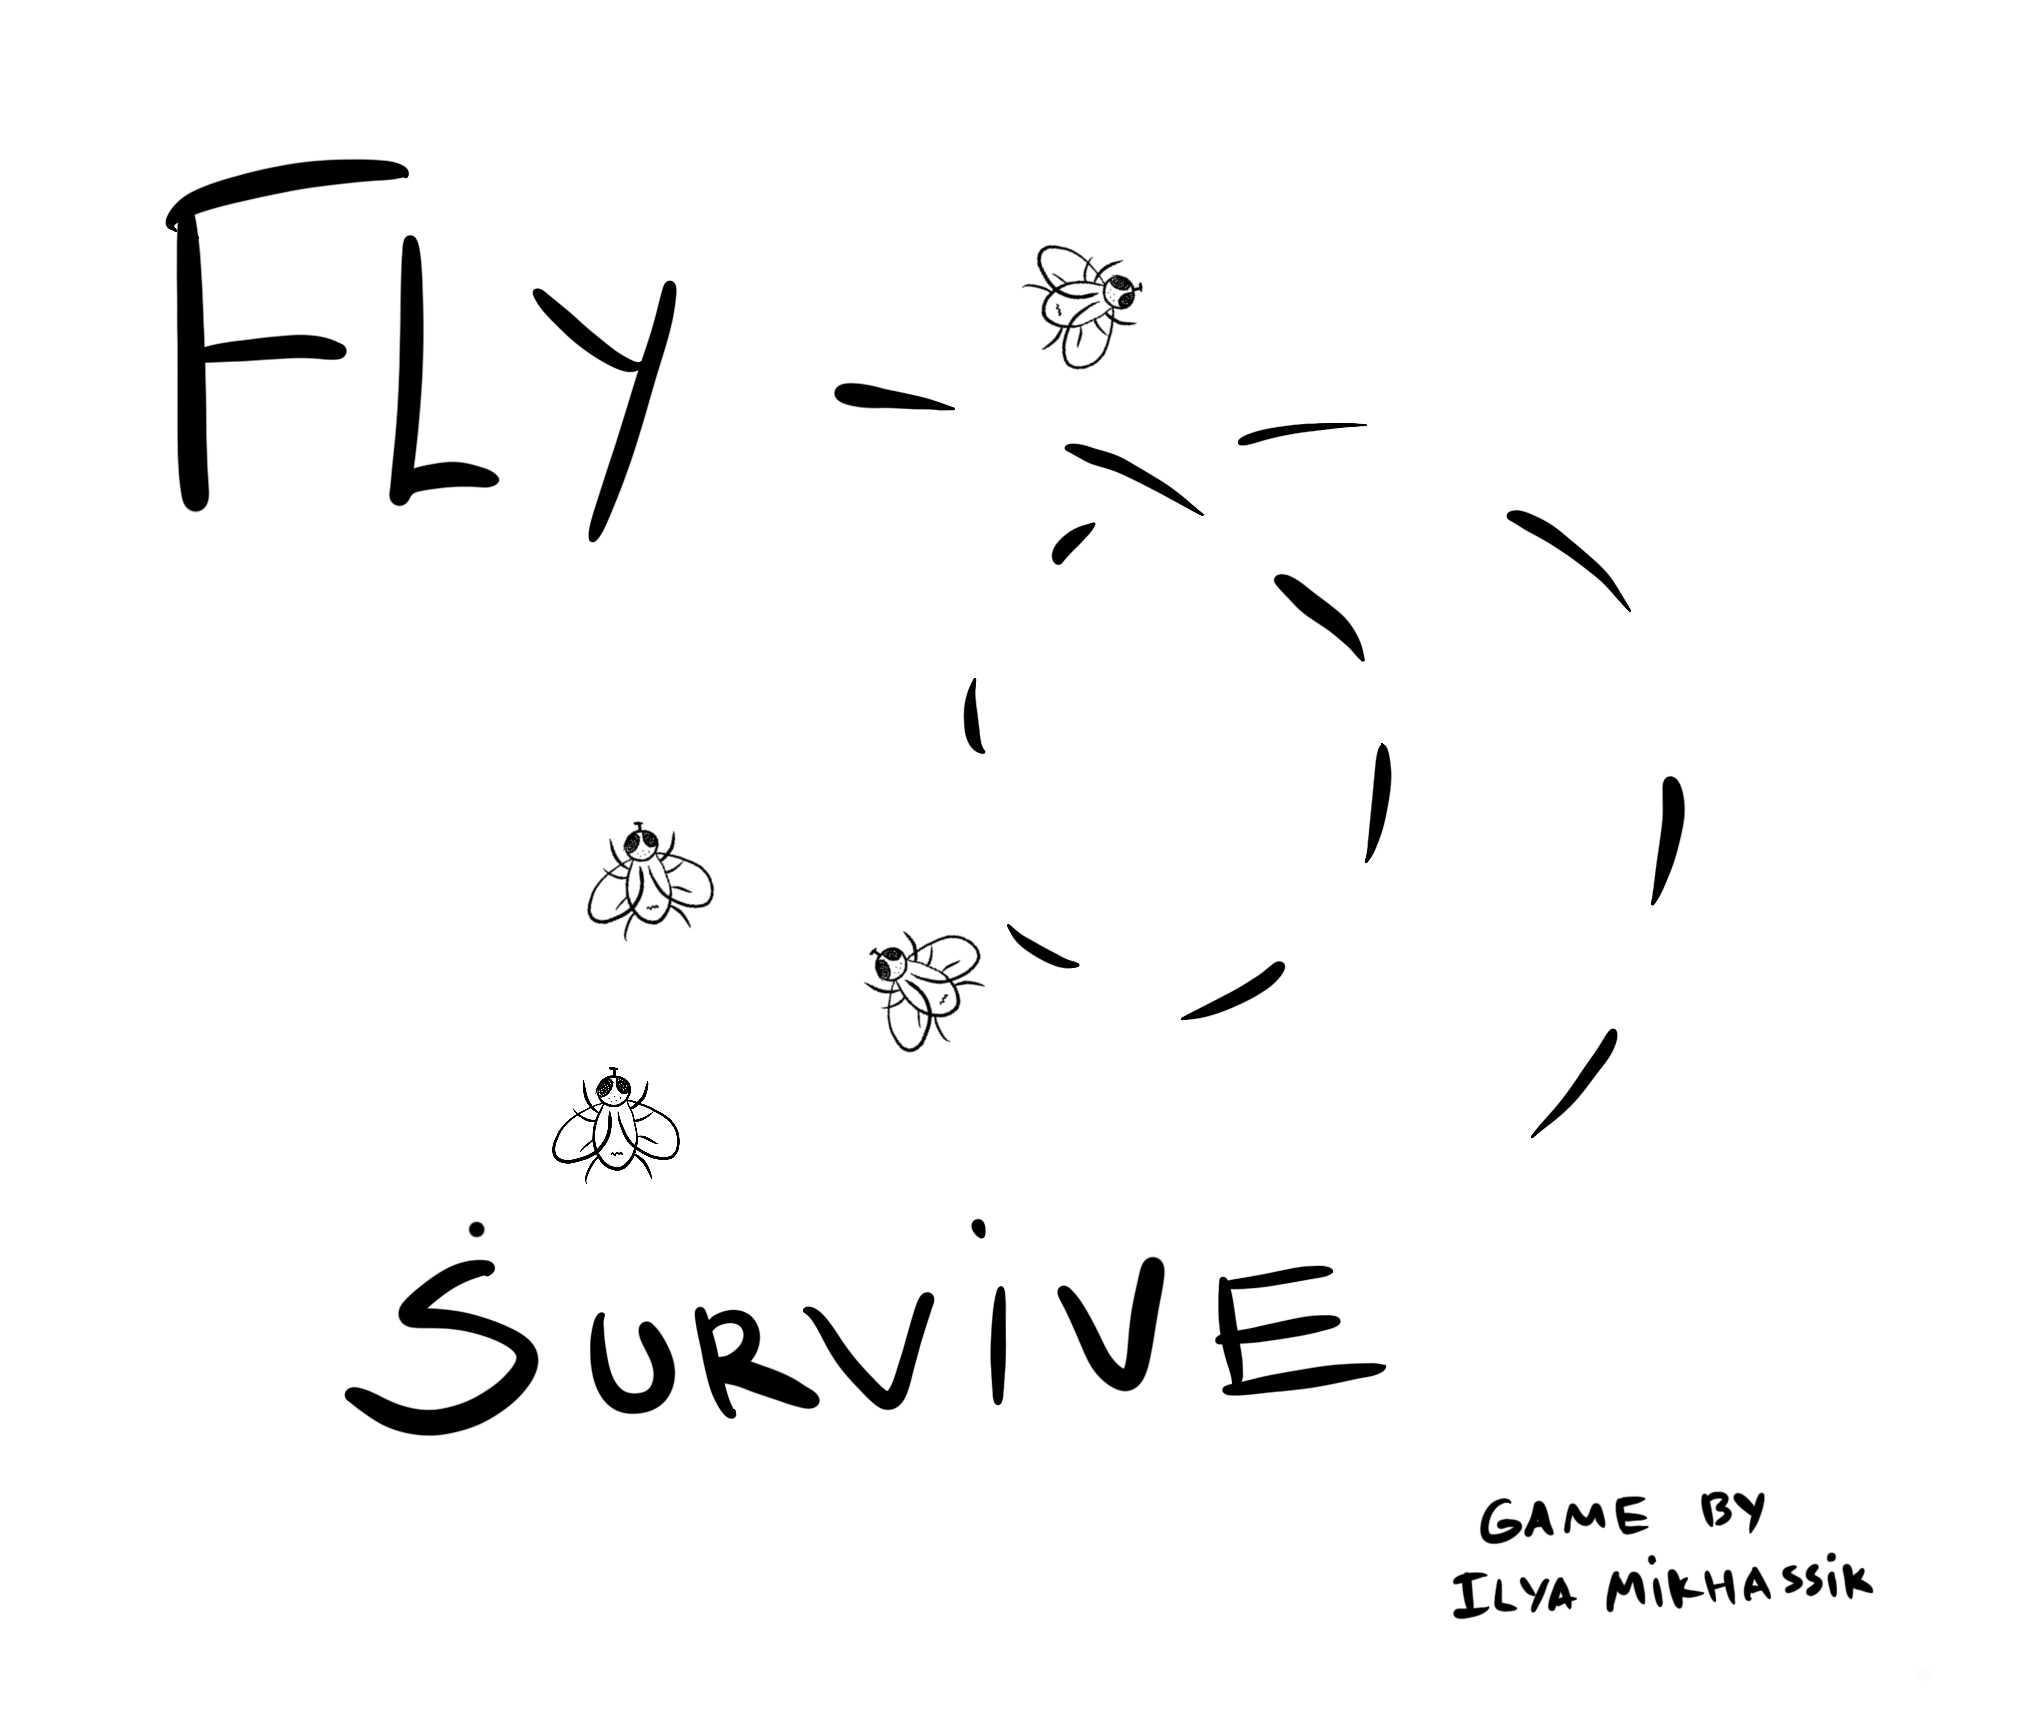 FLY
SURViVE
GAME BY
ILYA MiKHASSiK